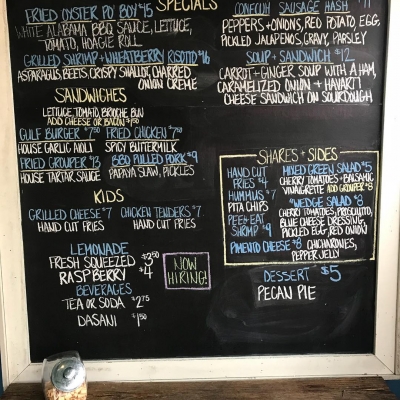 SPECIALS
FRIED OYSTER PO' BOY $15
WHITE ALABAMA BBQ SAUCE, LETTUCE,
TOMATO, HOAGIE ROLL
GRILLED SHRIMP + WHEATBERRY RISOTTO $16
ASPARAGUS, BEETS, CRISPY SHALLOT, CHARRED
ONION CREME
CONECUH SAUSAGE HASH $11
PEPPERS + ONIONS, RED POTATO, EGG,
PICKLED JALAPENOS, GRAVY, PARSLEY
SOUP + SANDWICH $12
CARROT-GINGER SOUP WITH A HAM,
CARAMELIZED ONION + HAVARTI
CHEESE SANDWICH ON SOURDOUGH
SANDWICHES
LETTUCE, TOMATO, BRIOCHE BUN
ADD CHEESE OR BACON $1.50
GULF BURGER $7.50 FRIED CHICKEN $7.50
HOUSE GARLIC AIOLI SPICY BUTTERMILK
FRIED GROUPER $13 BBQ PULLED PORK $9
HOUSE TARTAR SAUCE PAPAYA SLAW, PICKLES
KIDS
GRILLED CHEESE $7 CHICKEN TENDERS $7
HAND CUT FRIES HAND CUT FRIES
LEMONADE
FRESH SQUEEZED $3.50
RASPBERRY $4
BEVERAGES
TEA OR SODA $2.75
DASANI $1.50
NOW
HIRING!
SHARES + SIDES
HAND CUT
FRIES $4
HUMMUS $7
PITA CHIPS
PEEL+EAT
SHRIMP $9
MIXED GREEN SALAD $5
CHERRY TOMATOES + BALSAMIC
VINAIGRETTE ADD GROUPER $8
"WEDGE SALAD $8
CHERRY TOMATOES, PROSCIUTTO,
BLUE CHEESE DRESSING,
PICKLED EGG, RED ONION
PIMENTO CHEESE $8 CHICHARONES,
PEPPER JELLY
DESSERT $5
PECAN PIE